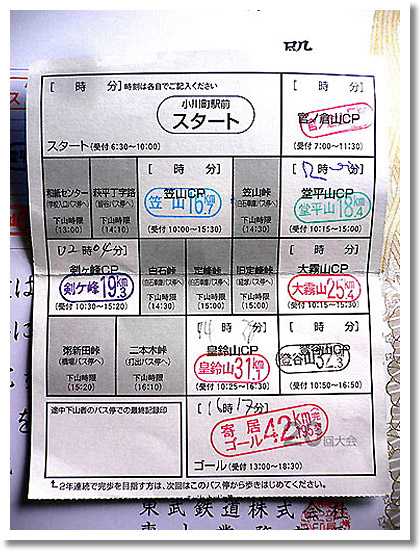 [ 時 分] 時刻は各自でご記入ください
小川町駅前
スタート
スタート (受付 6:30～10:00)
[ 時 分]
官ノ倉山CP
官ノ倉山
(受付 7:00～11:30)
和紙センター
(学校入口バス停へ)
下山時限
(13:00)
萩平丁字路
(皆谷バス停へ)
下山時限
(14:10)
[ 時 分]
笠山CP
笠山 16km.7
(受付 10:00～15:30)
笠山峠
(白石車庫バス停へ)
下山時限
(14:30)
堂平山CP
堂平山 18km.4
(受付 10:15～15:00)
[12時04分]
剣ケ峰CP
剣ケ峰 19km.3
(受付 10:30～15:20)
白石峠
(白石車庫バス停へ)
下山時限
(14:30)
定峰峠
(白石車庫バス停へ)
下山時限
(15:00)
旧定峰峠
(経塚バス停へ)
下山時限
(15:00)
[ 時 分]
大霧山CP
大霧山 25km.4
(受付 10:15～15:30)
粥新田峠
(橋場バス停へ)
下山時限
(15:20)
二本木峠
(打出バス停へ)
下山時限
(16:10)
時 分]
皇鈴山CP
皇鈴山 31km.1
(受付 10:25～16:30)
[ 時 分]
登谷山CP
登谷山 32km.3
(受付 10:50～16:50)
途中下山者のバス停での最終記録印
[16時17分]
寄居
ゴール 42km.195 (完歩)
回大会
ゴール (受付 13:00～18:30)
2年連続で完歩を目指す方は、次回はこのバス停から歩きはじめてください。
東武鉄道株式会社